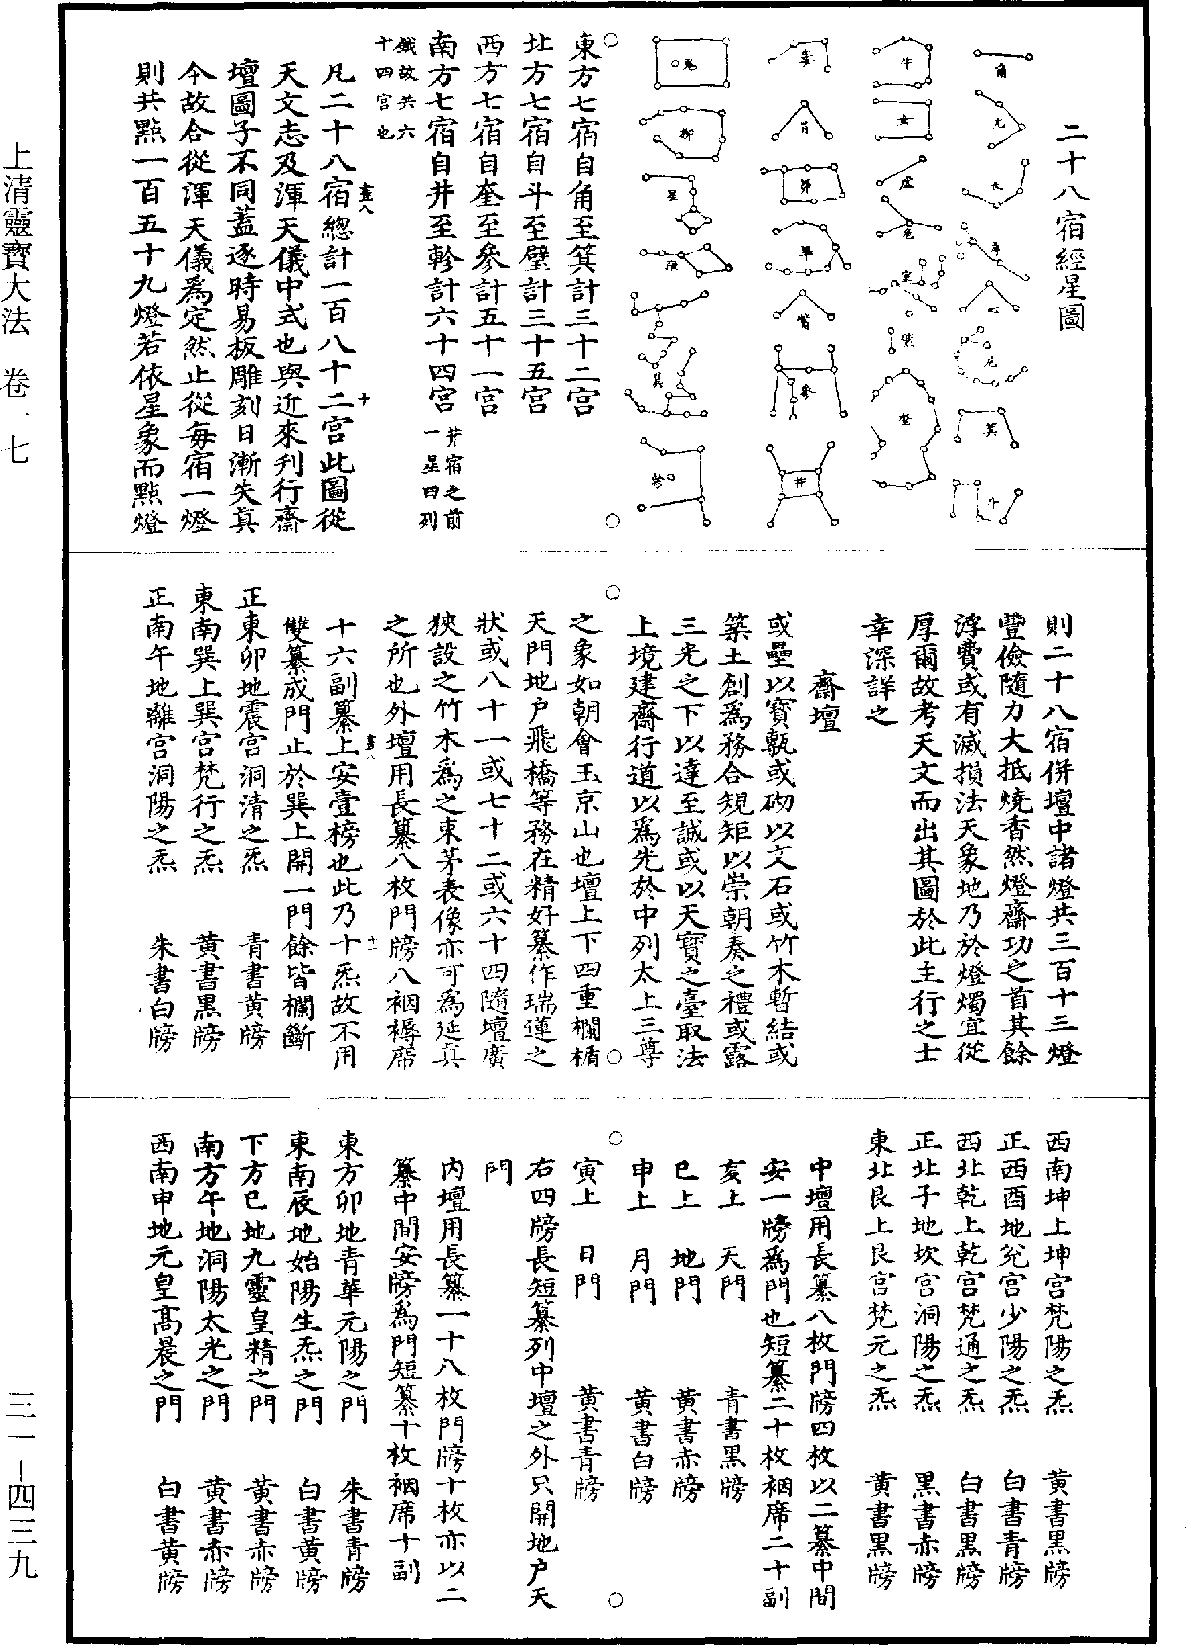 上清靈寶大法　卷一七
三一－四三九
二十八宿經星圖
角
亢
氐
房
心
尾
箕
斗
牛
女
虛
危
室
壁
奎
婁
胃
昴
畢
觜
參
井
鬼
柳
星
張
翼
軫
東方七宿自角至箕計三十二宮
北方七宿自斗至壁計三十五宮
西方七宿自奎至參計五十一宮
南方七宿自井至軫計六十四宮井宿之前一星曰列
鐵故共六十四宮也
凡二十八宿總計一百八十二宮此圖從
天文志及渾天儀中式也與近來刋行齋
壇圖子不同蓋逐時易板雕刻日漸失真
今故合從渾天儀爲定然止從每宿一燈
則共點一百五十九燈若依星象而點燈
則二十八宿併壇中諸燈共三百十三燈
豐儉隨力大抵燒香然燈齋功之首其餘
浮費或有減損法天象地乃於燈燭宜從
厚爾故考天文而出其圖於此主行之士
幸深詳之
齋壇
或壘以寶甎或砌以文石或竹木暫結或
築土創爲務合規矩以崇朝奏之禮或露
三光之下以達至誠或以天寶之臺取法
上境建齋行道以爲先於中列太上三尊
之象如朝會玉京山也壇上下四重欄楯
天門地戶飛橋等務在精好纂作瑞蓮之
狀或八十一或七十二或六十四隨壇廣
狹設之竹木爲之束茅表像亦可爲延真
之所也外壇用長纂八枚門牓八裀褥席
十六副纂上安壹榜也此乃十炁故不用
雙纂成門止於巽上開一門餘皆欄斷
正東卯地震宮洞清之炁　青書黃牓
東南巽上巽宮梵行之炁　黃書黑牓
正南午地離宮洞陽之炁　朱書白牓
西南坤上坤宮梵陽之炁　黃書黑牓
正西酉地兊宮少陽之炁　白書青牓
西北乾上乾宮梵通之炁　白書黑牓
正北子地坎宮洞陽之炁　黑書赤牓
東北艮上艮宮梵元之炁　黃書黑牓
中壇用長纂八枚門牓四枚以二纂中間
安一牓爲門也短纂二十枚裀席二十副
亥上　天門　青書黑牓
巳上　地門　黃書赤牓
申上　月門　黃書白牓
寅上　日門　黃書青牓
右四牓長短纂列中壇之外只開地戶天
門
内壇用長纂一十八枚門牓十枚亦以二
纂中間安牓爲門短纂十枚裀席十副
東方卯地青華元陽之門　朱書青牓
東南辰地始陽生炁之門　白書黃牓
下方巳地九靈皇精之門　黃書赤牓
南方午地洞陽太光之門　黃書赤牓
西南申地元皇高晨之門　白書黃牓